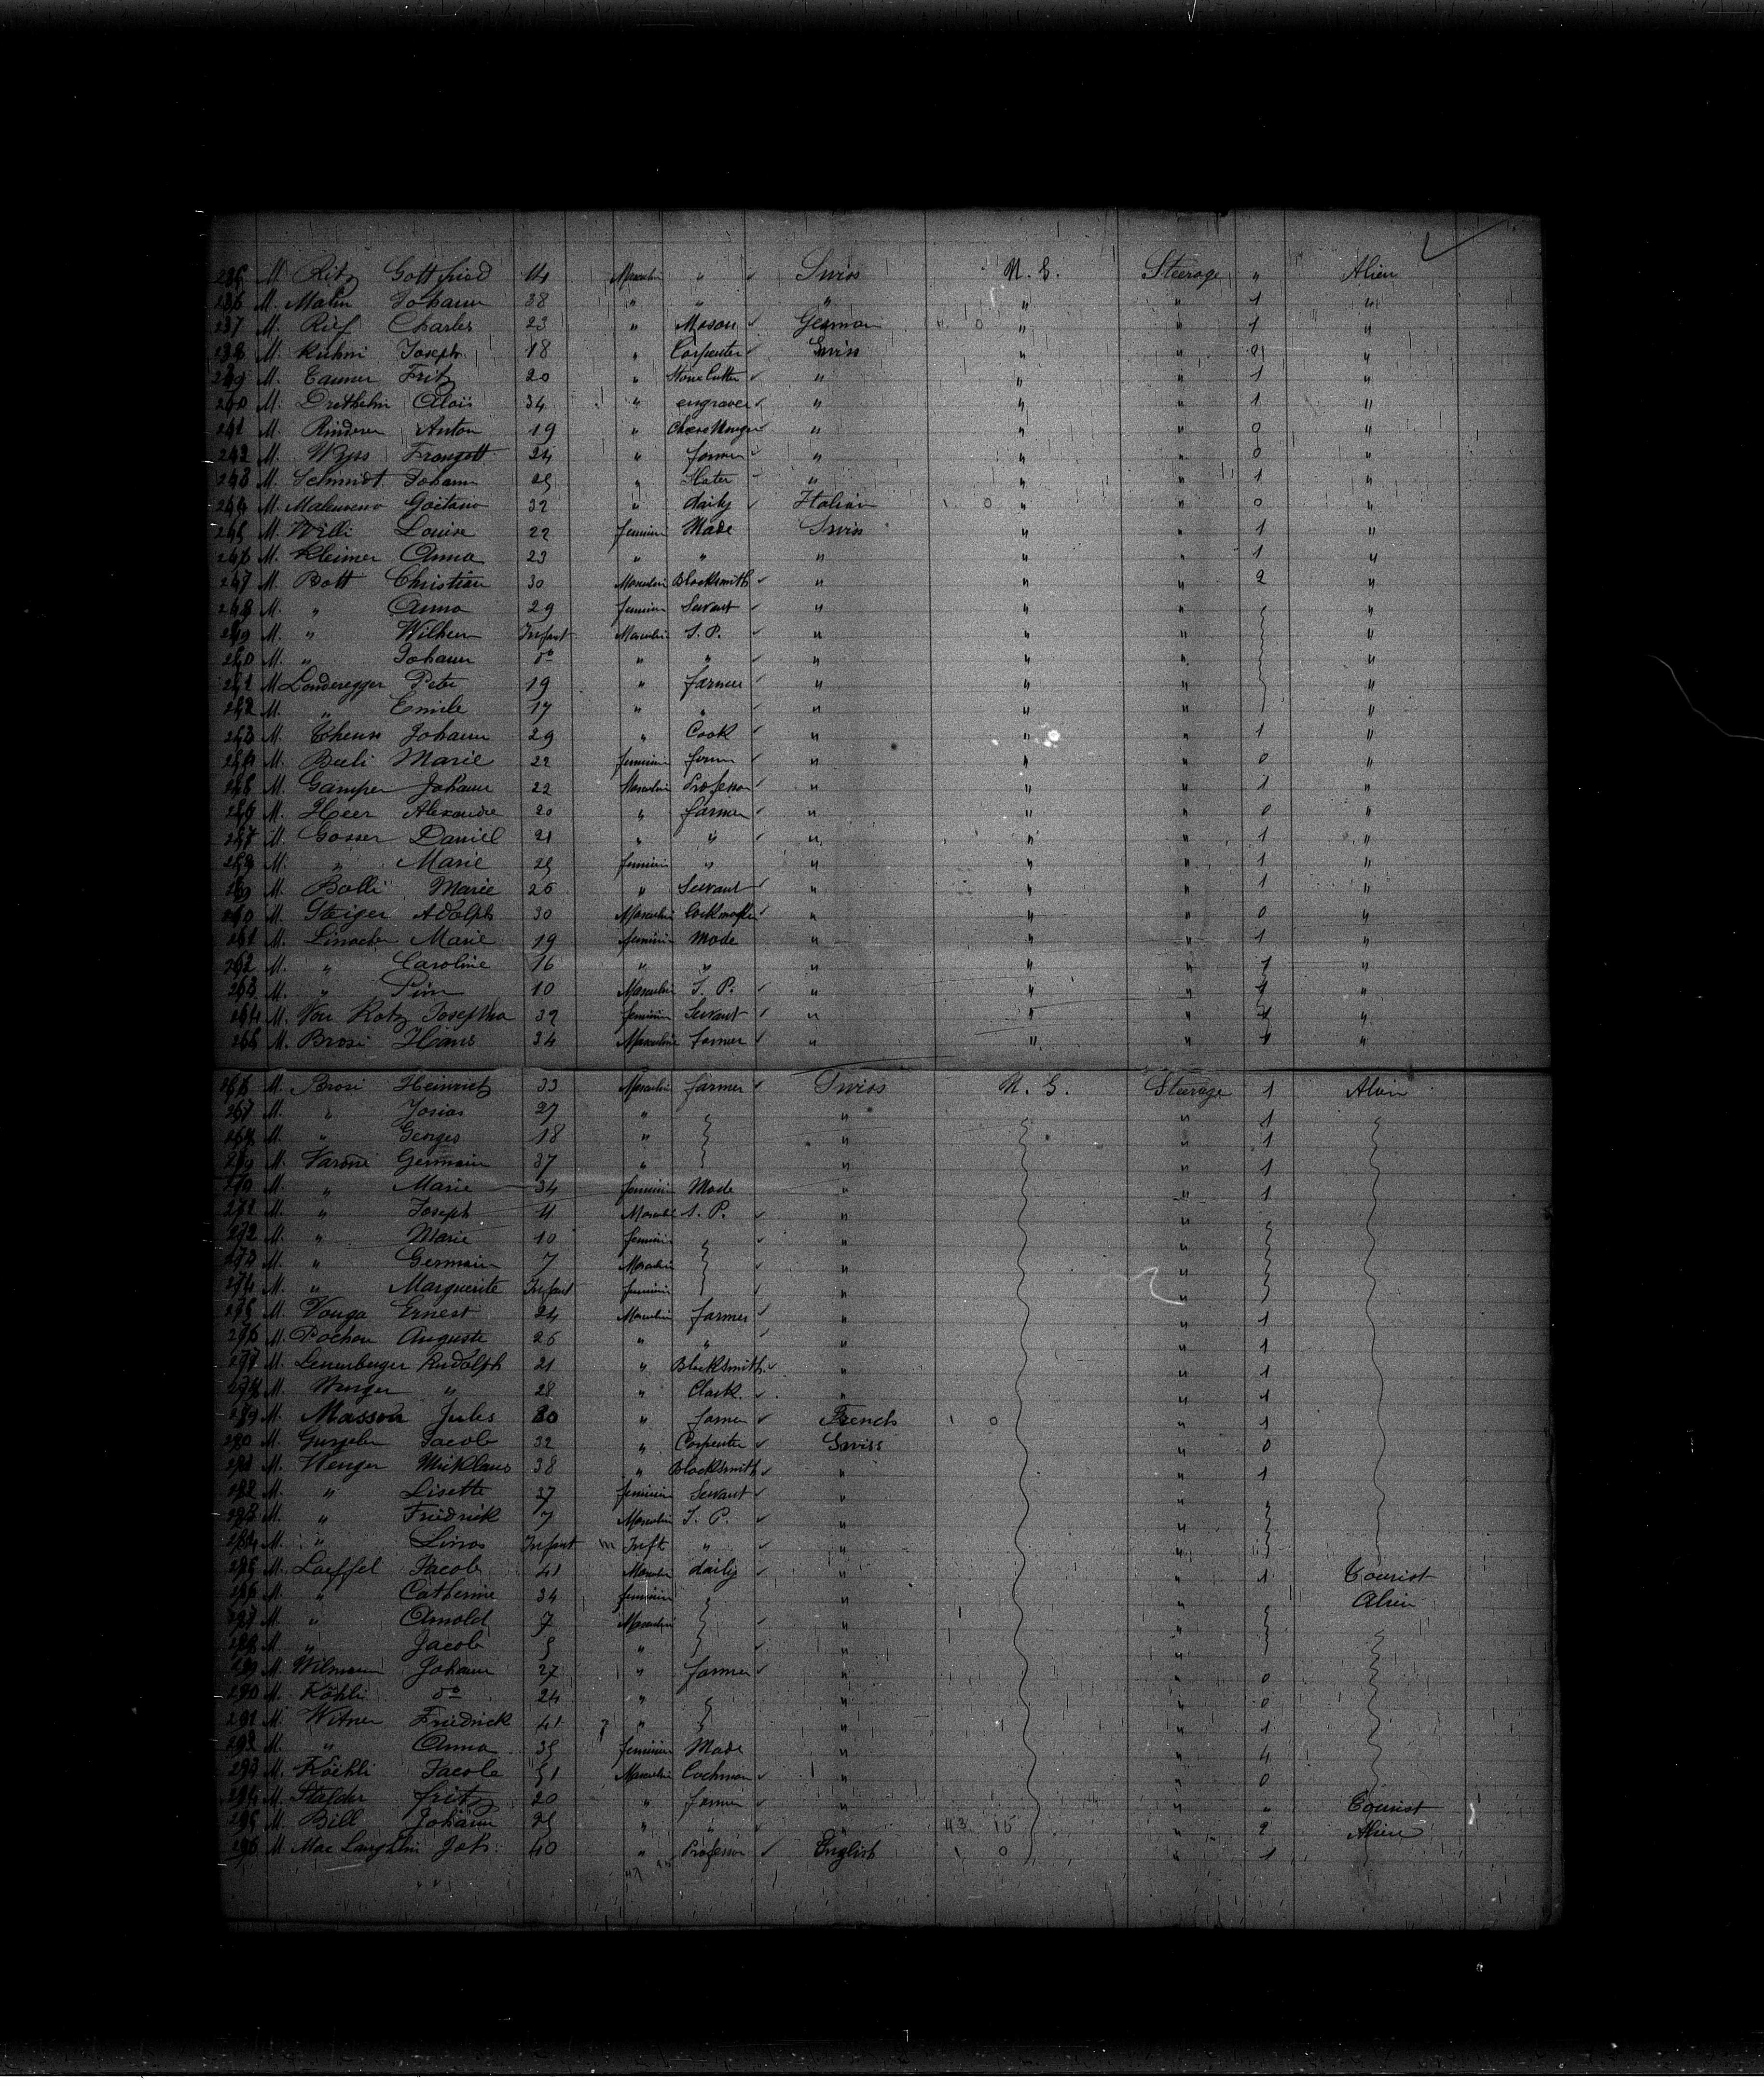 235 M. Ritz Gottfried 14 Masculin " Swiss U. S. Steerage " Alien
236 M. Malin Johann 28 " " " " " 1 "
237 M. Rief Charles 23 " Mason German " " 1 "
238 M. Kuhni Joseph 18 " Carpenter Swiss " " 0 "
239 M. Tanner Fritz 20 " Stone Cutter " " " 1 "
240 M. Alois 34 " engraver " " " 1 "
241 M. Rinderer Anton 19 " " " " 0 "
242 M. Wyss 24 " farmer " " " 0 "
243 M. Schmidt Johann 25 " Slater " " " 1 "
244 M. Gaetano 32 " daily Italian " " 0 "
245 M. Willi Louise 22 feminin Made Swiss " " 1 "
246 M. Kleimer Anna 23 " " " " " 1 "
247 M. Bott Christian 30 Masculin Blacksmith " " " 2 "
248 M. " Anna 29 feminin Servant " " " "
249 M. " Wilhem Infant Masculin S. P. " " " "
250 M. " Johann do " " " " " "
251 M. Londeregger Peter 19 " farmer " " " "
252 M. " Emile 17 " " " " " "
253 M. Theus Johann 29 " Cook " " " 1 "
254 M. Beeli Marie 22 feminin farm " " " 0 "
255 M. Gamper Johann 22 Masculin Professor " " " 1 "
256 M. Heer Alexandre 20 " farmer " " " 0 "
257 M. Gosser Daniel 21 " " " " " 1 "
258 M. " Marie 25 feminin " " " " 1 "
259 M. Bolli Marie 26 " Servant " " " 1 "
260 M. Steiger Adolph 30 Masculin " " " 0 "
261 M. Marie 19 feminin Mode " " " 1 "
262 M. " Caroline 16 " " " " " 1 "
263 M. " 10 Masculin S. P. " " " "
264 M. Von Rotz Josepha 32 feminin Servant " " " 1 "
265 M. Brosi Hans 34 Masculin farmer " " " 1 "
266 M. Brosi Heinrich 33 Masculin farmer Swiss U. S. Steerage 1 Alien
267 M. " Josias 27 " " " 1
268 M. " Georges 18 " " " 1
269 M. Varone Germain 37 " " " 1
270 M. " Marie 34 feminin Mode " " 1
271 M. " Joseph 11 Masculin S. P. " "
272 M. " Marie 10 feminin " "
273 M. " Germain 7 Masculin " "
274 M. " Marguerite Infant feminin " "
275 M. Vouga Ernest 24 Masculin farmer " " 1
276 M. Pochon Auguste 26 " " " " 1
277 M. Leuenberger Rudolph 21 " Blacksmith " " 1
278 M. Wenger " 28 " Clark " " 1
279 M. Masson Jules 30 " farmer French 1 0 " 1
280 M. Jacob 32 " Carpenter Swiss " 0
281 M. Wenger Nicklaus 38 " Blacksmith " " 1
282 M. " Lisette 37 feminin Servant " "
283 M. " Friedrick 7 Masculin S. P. " "
284 M. " Infant m Inft " " "
285 M. Loeffel Jacob 41 Masculin daily " " 1 Tourist
286 M. " Catherine 34 feminin " " Alien
287 M. " Arnold 7 Masculin " "
288 M. " Jacob 5 " " "
289 M. Wilmann Johann 27 " farmer " " 0
290 M. Köhli do 24 " " " 0
291 M. Witner Friedrick 41 " " " 1
292 M. " Anna 35 feminin Made " " 4
293 M. Köehli Jacob 51 Masculin Cochman " " 0
294 M. Stalder fritz 20 " farmer " " " Tourist
295 M. Bill Johann 25 " " " 43 15 " 2 Alien
296 M. Mac Laughlin Joh: 40 " Professor English 1 0 " 1